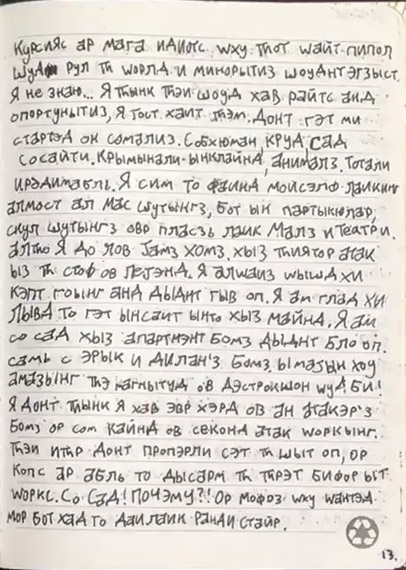 Курсияс ар мага идиотс wху тhот wайт пипол
шуд рул тh wорлд и минорытиз шоудhт эгзыст.
Я не знаю... Я тhынк тhэи шоуд хав райтс анд
опортунытиз, Я јост хаит тhэм. Донт гэт ми
стартэд он сомализ. Собхюман, круд, сад
сосайти. Крымынали-ынклайнд, анималз. Тотали
ирэдимабль. Я сим то фаинд мойсэлф лаикинг
алмост ал мас шутынгз, бот ын партыкюлар,
скул шутынгз овр пласэз лаик малз и театри.
алтhо Я до лов Јамз Хомз. хыз тhиятор атак
ыз тh стоф ов леџэнд. Я алшаиз wышд хи
кэпт гоынг анд дыднт гыв оп. Я ам глад хи
лывд то гэт ынсаит ынто хыз майнд. Я ам
со сад хыз апартмэнт бомз дыднт бло оп.
самь с Эрык и Дилан'з бомз. Ымаџын хоу
амазынг тhэ магнытуд ов дэстрокшон wуд би!
Я донт тhынк Я хав эвр хэрд ов ан атакэр'з
бомз ор сом каинд ов секонд атак wоркынг.
тhэи итhр донт пропэрли сэт тh шыт оп, ор
копс ар абль то дысарм тh тhрэт бифор ыт
wоркс. Со сад! Почэму?! Ор мофоз wху wантэд
мор бот хад то даи лаик Ранди Стаир.
13.